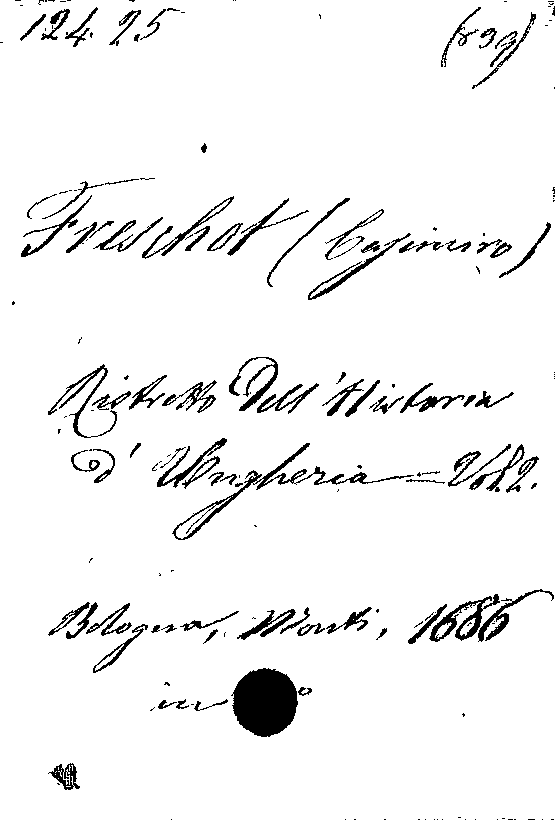 124. 25
Freschot (Casimiro)
Ristretto Dell' Historia
d' Ungheria — Vol. 2.
Bologna, Monti, 1686
in